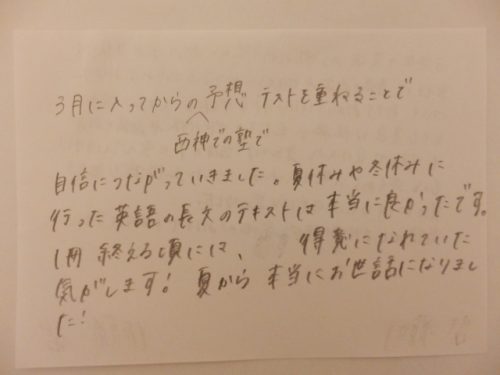 3月に入ってからの予想テストを重ねることで
西神での塾で
自信につながっていきました。夏休みや冬休みに
行った英語の長文のテキストは本当に良かったです。
1冊終える頃には、得意になれていた
気がします！夏から本当にお世話になりまし
た！